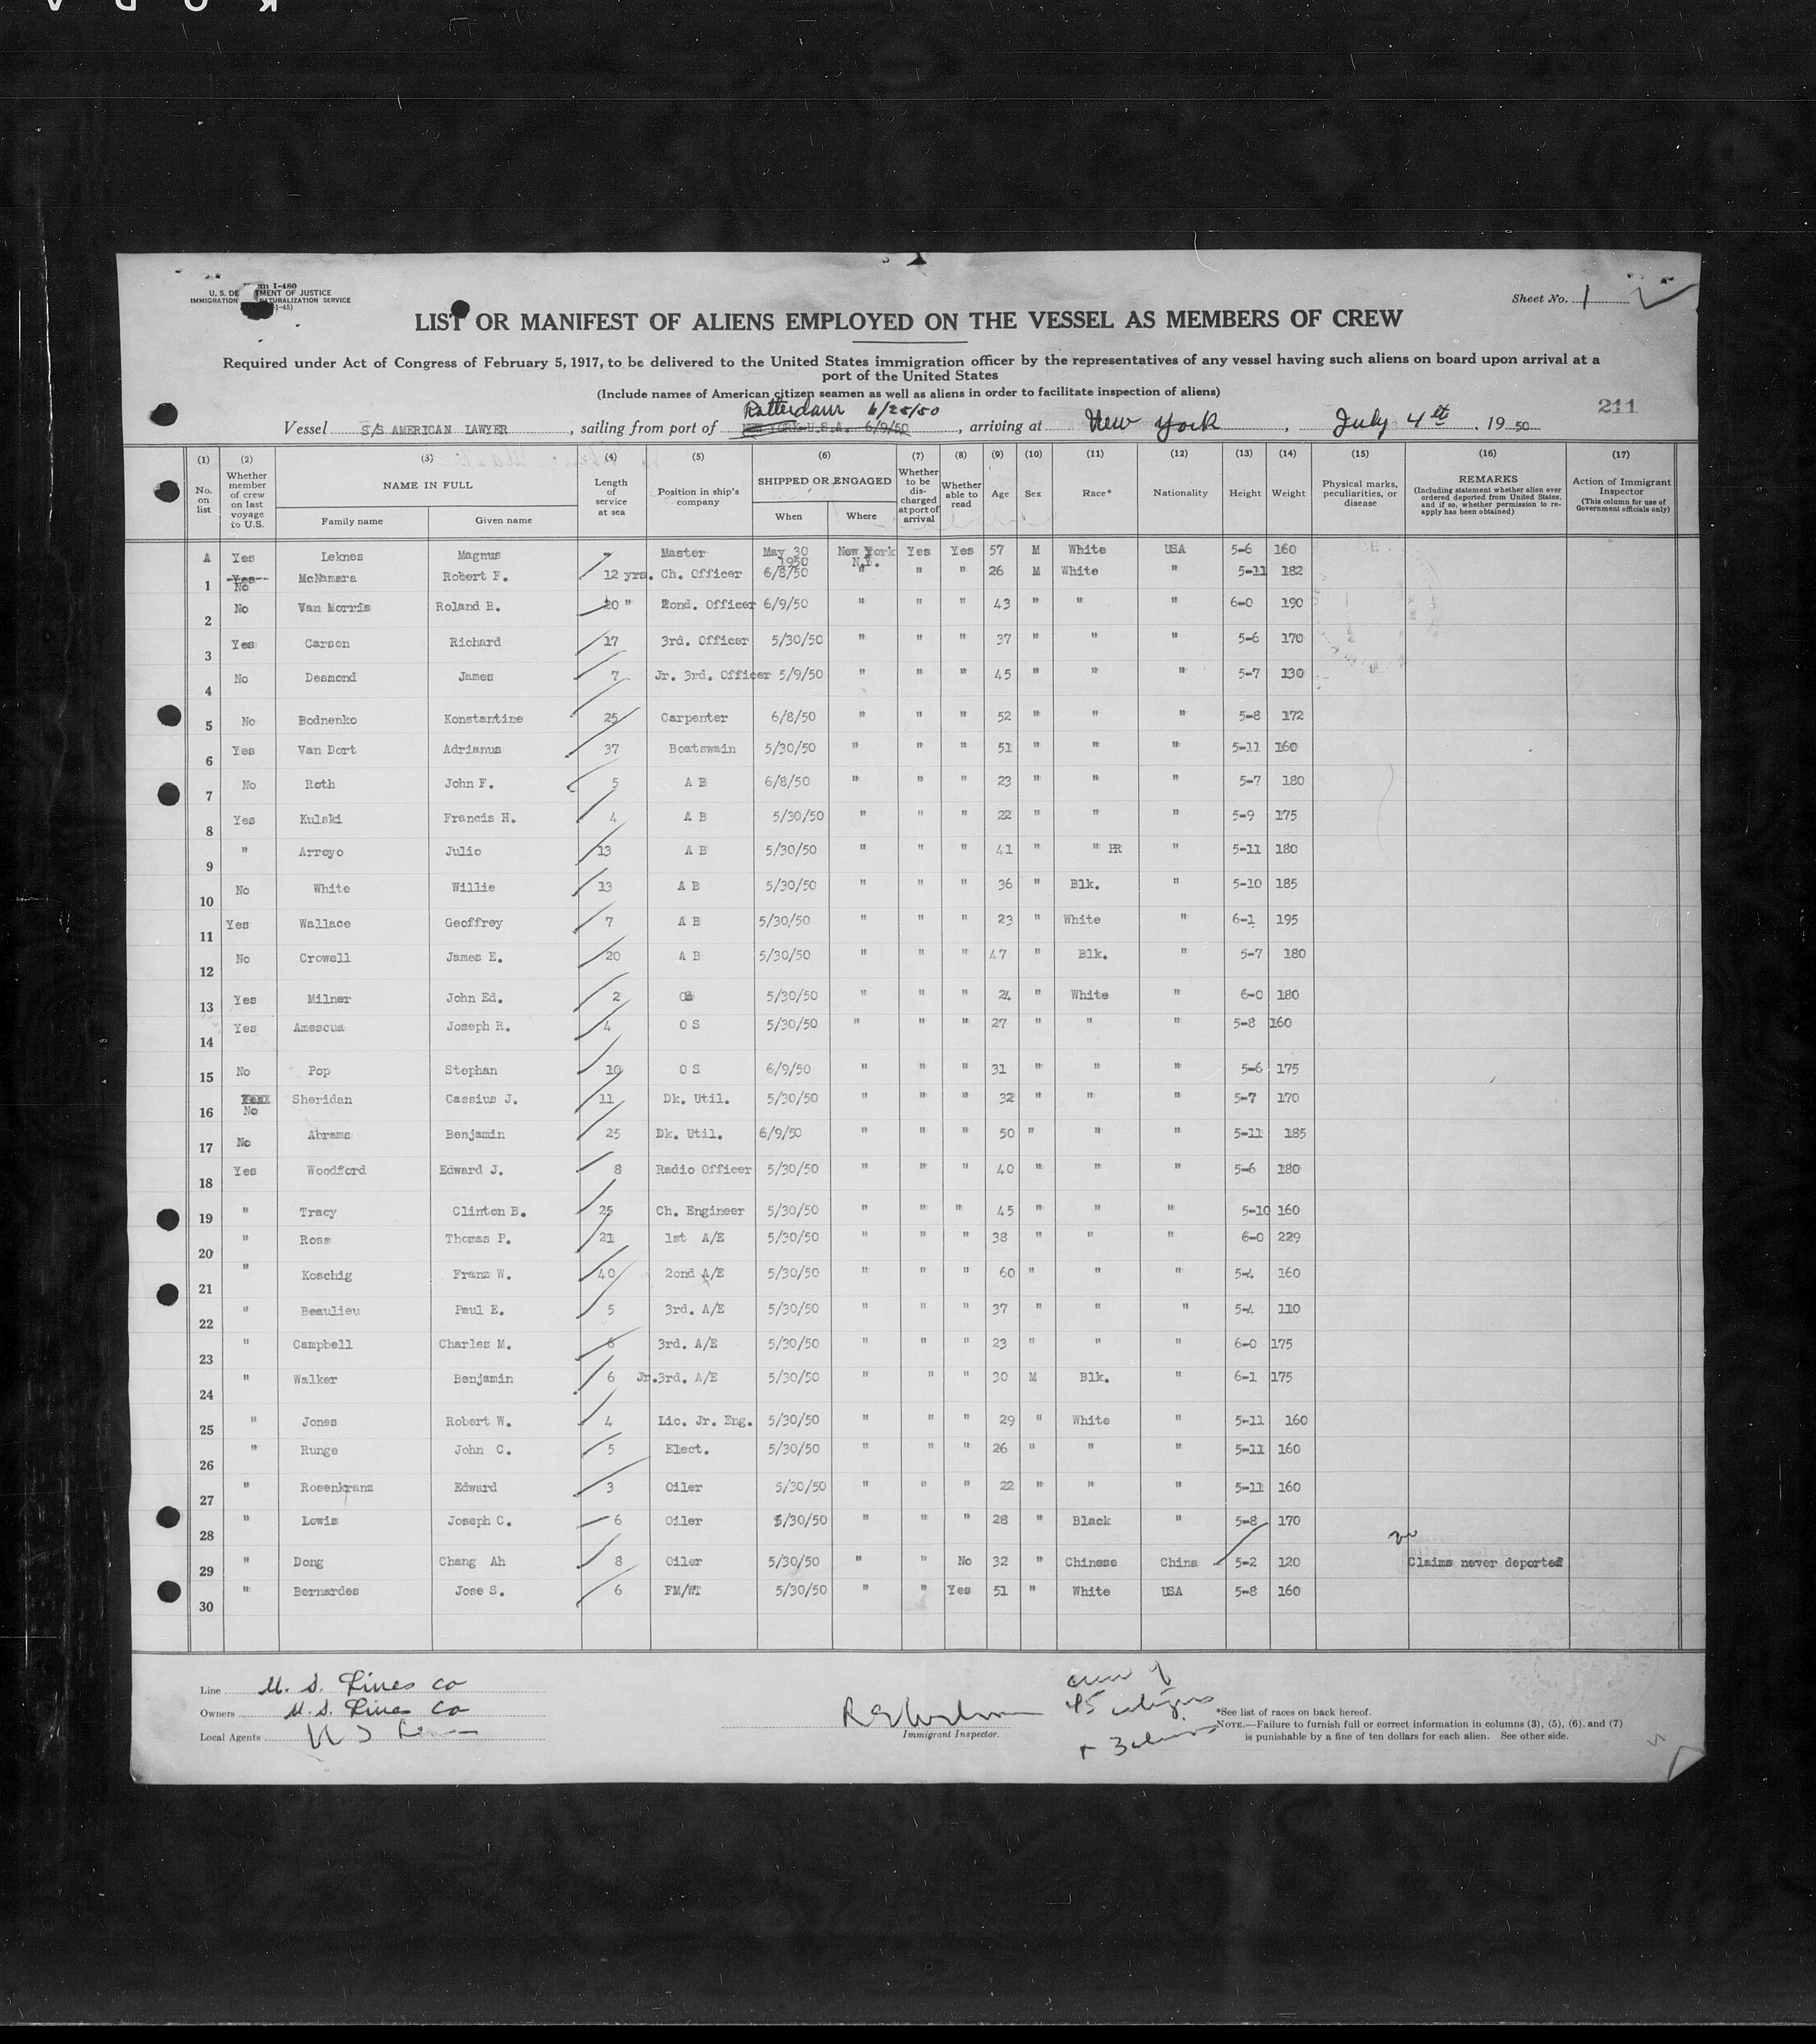 KODA
Form I-480
U. S. DE TMENT OF JUSTICE
IMMIGRATION NATURALIZATION SERVICE
-45)
Sheet No. 1
LIST OR MANIFEST OF ALIENS EMPLOYED ON THE VESSEL AS MEMBERS OF CREW
Required under Act of Congress of February 5, 1917, to be delivered to the United States immigration officer by the representatives of any vessel having such aliens on board upon arrival at a
port of the United States
(Include names of American citizen seamen as well as aliens in order to facilitate inspection of aliens)
Rotterdam 6/25/50
211
Vessel S/S AMERICAN LAWYER, sailing from port of NEW YORK U.S.A. 6/9/50, arriving at New York, July 4th, 1950
(1) (2) (3) (4) (5) (6) (7) (8) (9) (10) (11) (12) (13) (14) (15) (16) (17)
No. on list
Whether member of crew on last voyage to U.S.
NAME IN FULL
Family name Given name
Length of service at sea
Position in ship's company
SHIPPED OR ENGAGED
When Where
Whether to be discharged at port of arrival
Whether able to read
Age Sex Race* Nationality Height Weight
Physical marks, peculiarities, or disease
REMARKS
(Including statement whether alien ever ordered deported from United States, and if so, whether permission to re-apply has been obtained)
Action of Immigrant Inspector
(This column for use of Government officials only)
A Yes Leknes Magnus Master May 30 1950 New York N.Y. Yes Yes 57 M White USA 5-6 160
1 Yes No McNamara Robert F. 12 yrs. Ch. Officer 6/8/50 " " " 26 M White " 5-11 182
2 No Van Morris Roland B. 20 " 2ond. Officer 6/9/50 " " " 43 " " " 6-0 190
3 Yes Carson Richard 17 3rd. Officer 5/30/50 " " " 37 " " " 5-6 170
4 No Desmond James 7 Jr. 3rd. Officer 5/9/50 " " " 45 " " " 5-7 130
5 No Bodnenko Konstantine 25 Carpenter 6/8/50 " " " 52 " " " 5-8 172
6 Yes Van Dort Adrianus 37 Boatswain 5/30/50 " " " 51 " " " 5-11 160
7 No Roth John F. 5 A B 6/8/50 " " " 23 " " " 5-7 180
8 Yes Kulski Francis H. 4 A B 5/30/50 " " " 22 " " " 5-9 175
9 " Arroyo Julio 13 A B 5/30/50 " " " 41 " " PR " 5-11 180
10 No White Willie 13 A B 5/30/50 " " " 36 " Blk. " 5-10 185
11 Yes Wallace Geoffrey 7 A B 5/30/50 " " " 23 " White " 6-1 195
12 No Crowell James E. 20 A B 5/30/50 " " " 47 " Blk. " 5-7 180
13 Yes Milner John Ed. 2 OS 5/30/50 " " " 24 " White " 6-0 180
14 Yes Amescua Joseph R. 4 O S 5/30/50 " " " 27 " " " 5-8 160
15 No Pop Stephan 10 O S 6/9/50 " " " 31 " " " 5-6 175
16 No Sheridan Cassius J. 11 Dk. Util. 5/30/50 " " " 32 " " " 5-7 170
17 No Abrams Benjamin 25 Dk. Util. 6/9/50 " " " 50 " " " 5-11 185
18 Yes Woodford Edward J. 8 Radio Officer 5/30/50 " " " 40 " " " 5-6 180
19 " Tracy Clinton B. 25 Ch. Engineer 5/30/50 " " " 45 " " " 5-10 160
20 " Ross Thomas P. 21 1st A/E 5/30/50 " " " 38 " " " 6-0 229
21 " Koschig Franz W. 40 2ond A/E 5/30/50 " " " 60 " " " 5-4 160
22 " Beaulieu Paul E. 5 3rd. A/E 5/30/50 " " " 37 " " " 5-4 110
23 " Campbell Charles M. 6 3rd. A/E 5/30/50 " " " 23 " " " 6-0 175
24 " Walker Benjamin 6 Jr.3rd. A/E 5/30/50 " " " 30 M Blk. " 6-1 175
25 " Jones Robert W. 4 Lic. Jr. Eng. 5/30/50 " " " 29 " White " 5-11 160
26 " Runge John C. 5 Elect. 5/30/50 " " " 26 " " " 5-11 160
27 " Rosenkranz Edward 3 Oiler 5/30/50 " " " 22 " " " 5-11 160
28 " Lewis Joseph C. 6 Oiler 5/30/50 " " " 28 " Black " 5-8 170
29 " Dong Chang Ah 8 Oiler 5/30/50 " " No 32 " Chinese China 5-2 120 Claims never deported
30 " Bernardes Jose S. 6 FM/WT 5/30/50 " " Yes 51 " White USA 5-8 160
Line U. S. Lines Co
Owners U. S. Lines Co
Local Agents U S Lines
Immigrant Inspector.
crew of
45 citizens
+ 3 aliens
*See list of races on back hereof.
NOTE.—Failure to furnish full or correct information in columns (3), (5), (6), and (7)
is punishable by a fine of ten dollars for each alien. See other side.